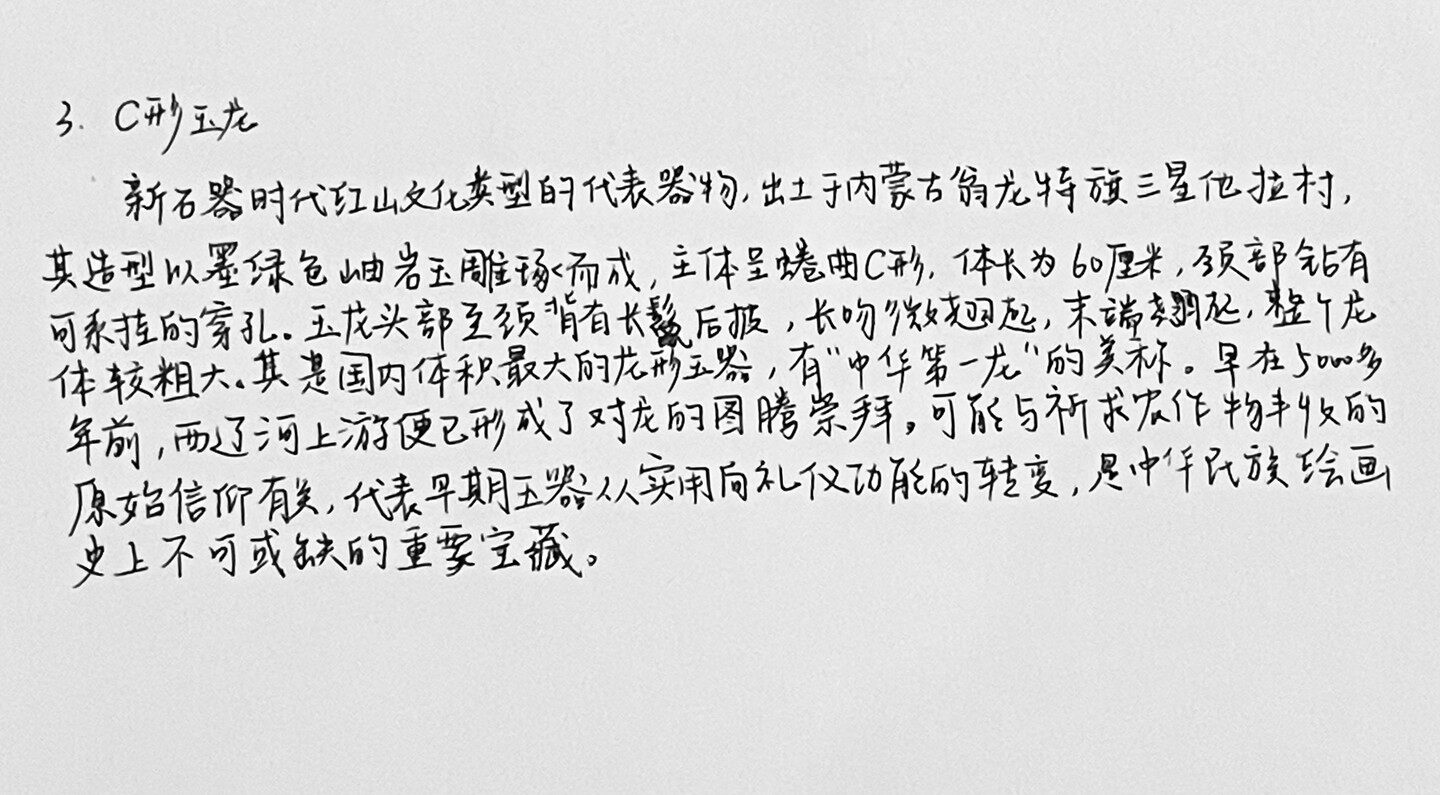 3. C形玉龙
新石器时代红山文化类型的代表器物,出土于内蒙古翁龙特旗三星他拉村,
其造型以墨绿色岫岩玉雕琢而成,主体呈蜷曲C形,体长为60厘米,颈部钻有
可系挂的穿孔。玉龙头部至颈背有长鬣后披,长吻微翘起,末端翘起,整个龙
体较粗大。其是国内体积最大的龙形玉器,有“中华第一龙”的美称。早在5000多
年前,西辽河上游便已形成了对龙的图腾崇拜。可能与祈求农作物丰收的
原始信仰有关,代表早期玉器从实用向礼仪功能的转变,是中华民族绘画
史上不可或缺的重要宝藏。